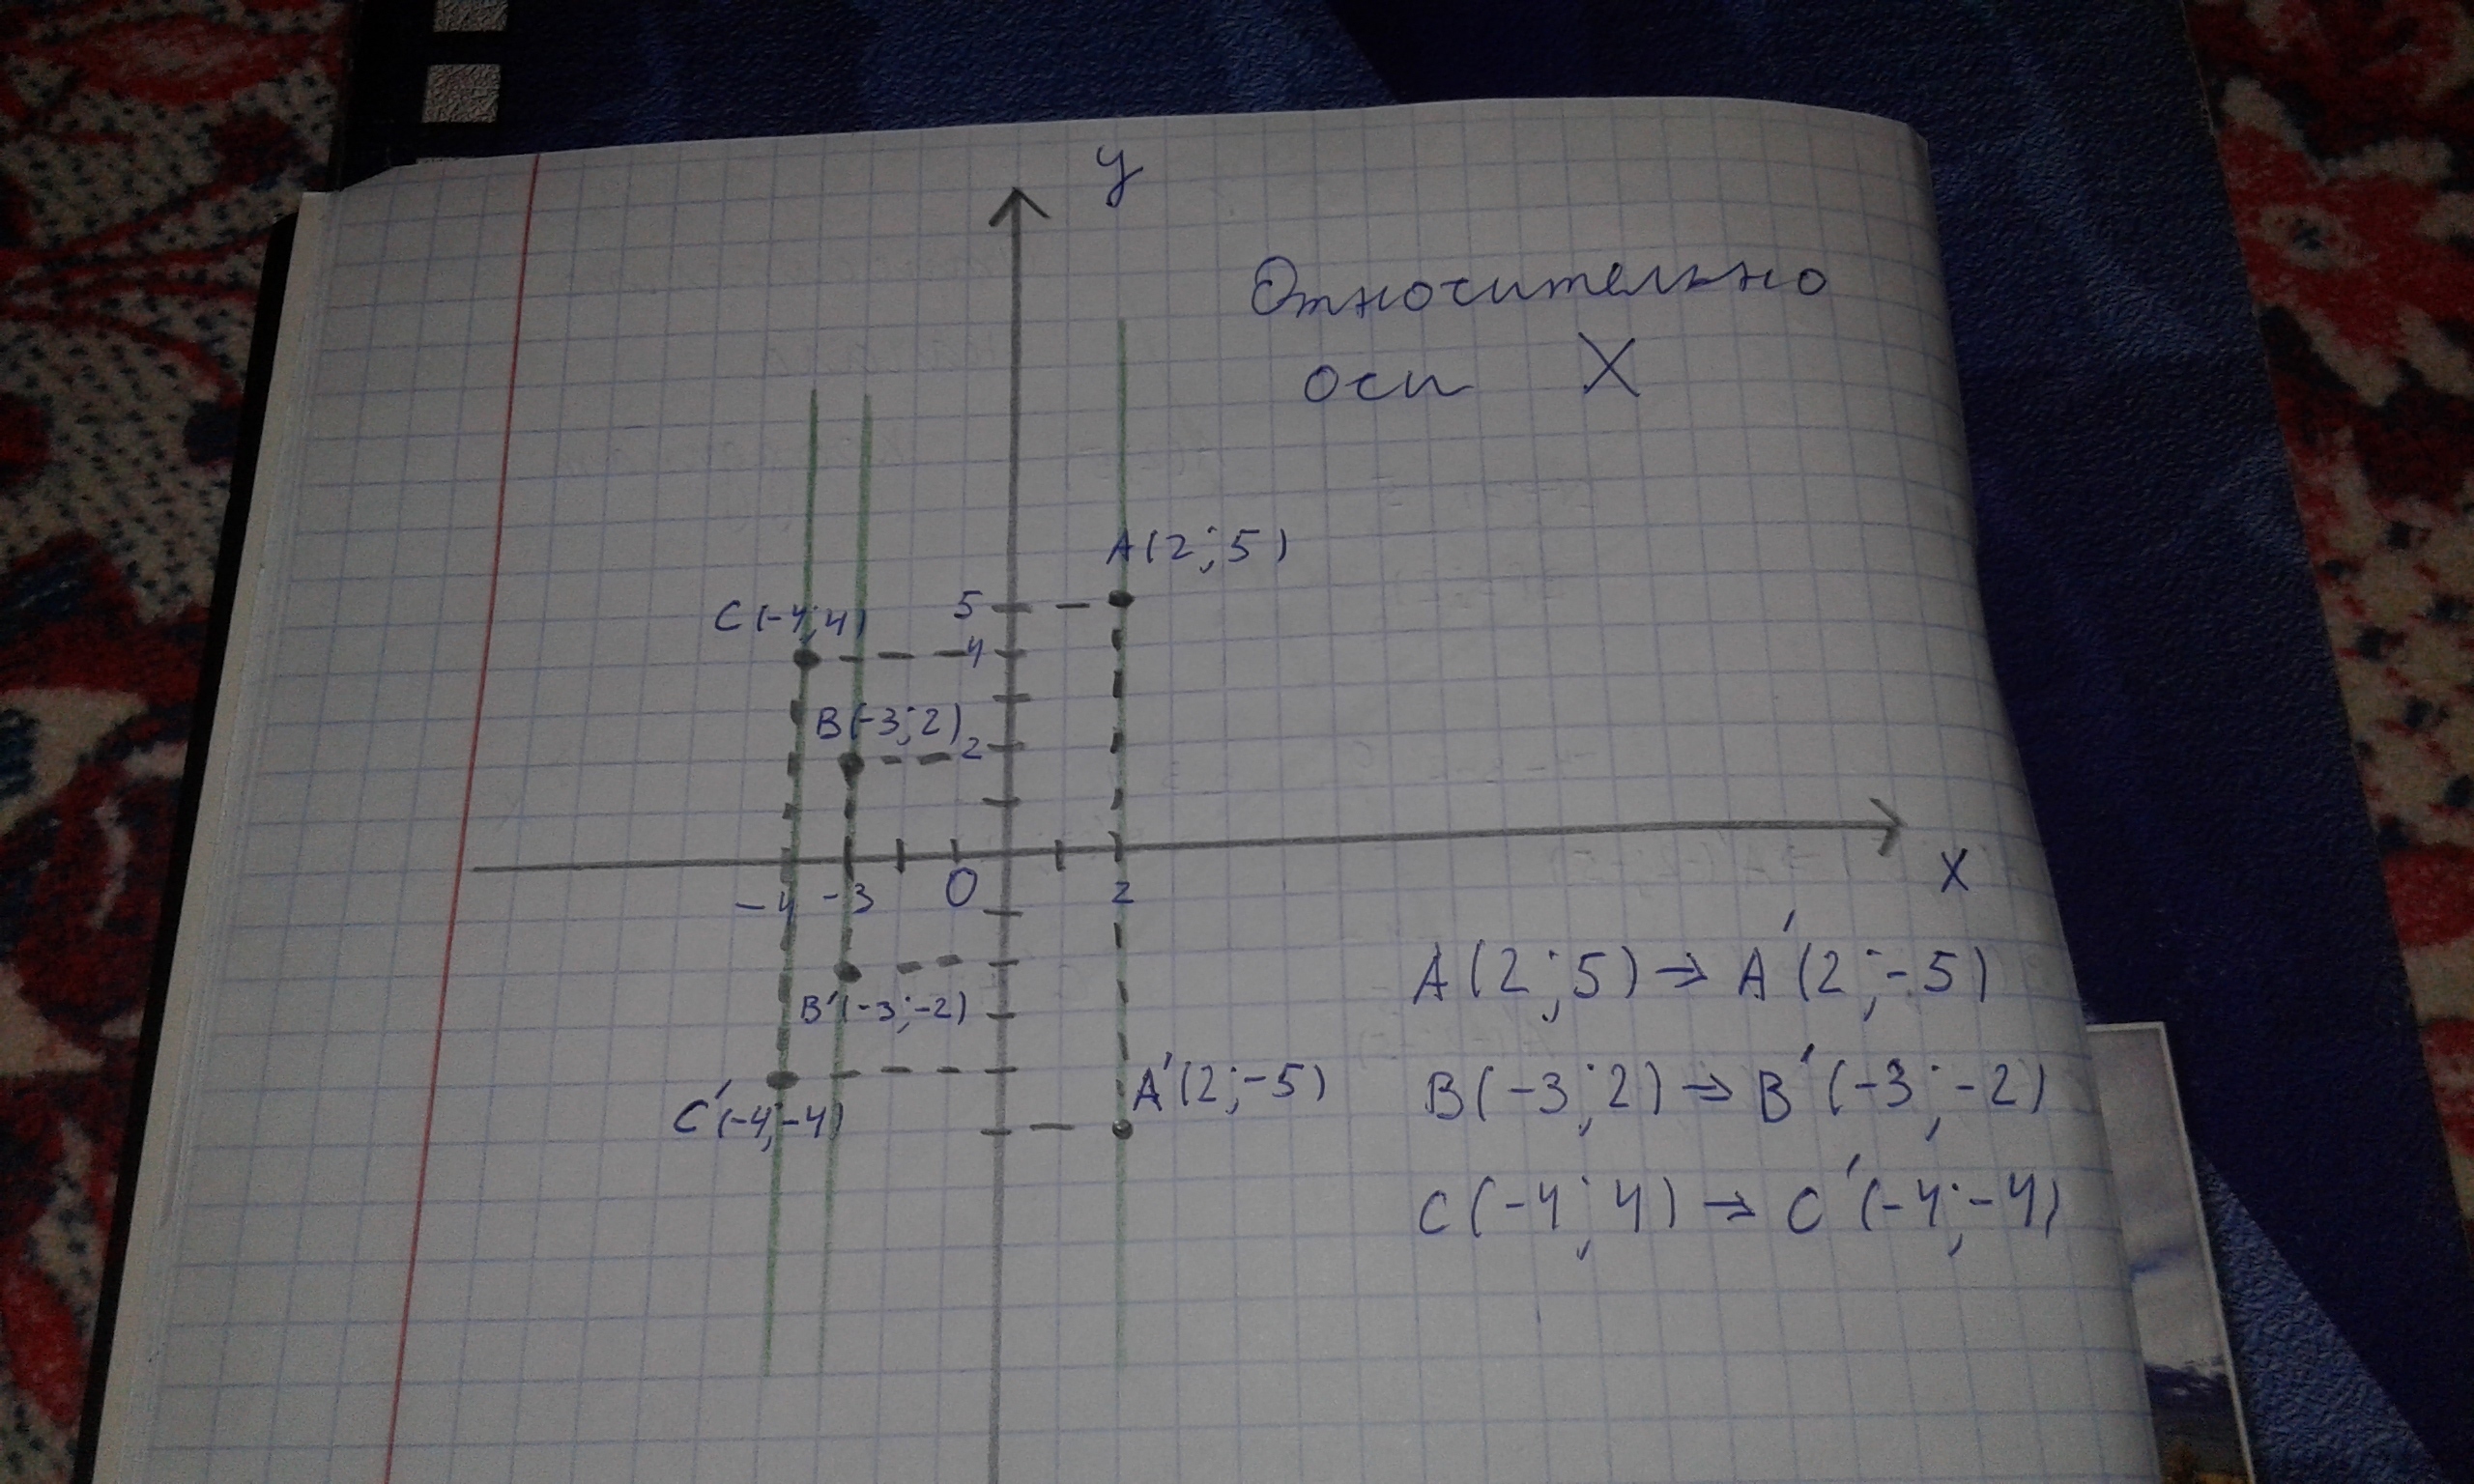 y
Относительно
оси X
A(2;5)
C(-4;4)
5
4
B(-3;2)
2
x
-4 -3 0 2
A(2;5)→A'(2;-5)
B'(-3;-2)
A'(2;-5)
B(-3;2)→B'(-3;-2)
C'(-4;-4)
C(-4;4)→C'(-4;-4)